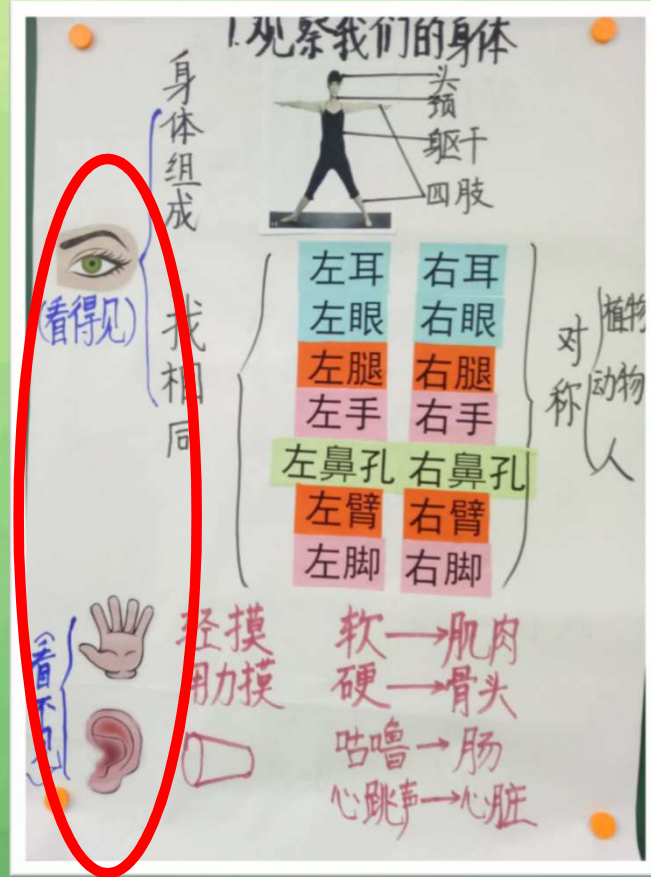 1.观察我们的身体
身体组成
头
颈
躯干
四肢
(看得见)
找相同
左耳 右耳
左眼 右眼
左腿 右腿
左手 右手
左鼻孔 右鼻孔
左臂 右臂
左脚 右脚
对称
植物
动物
人
(看不见)
轻摸 软→肌肉
用力摸 硬→骨头
咕噜→肠
心跳声→心脏